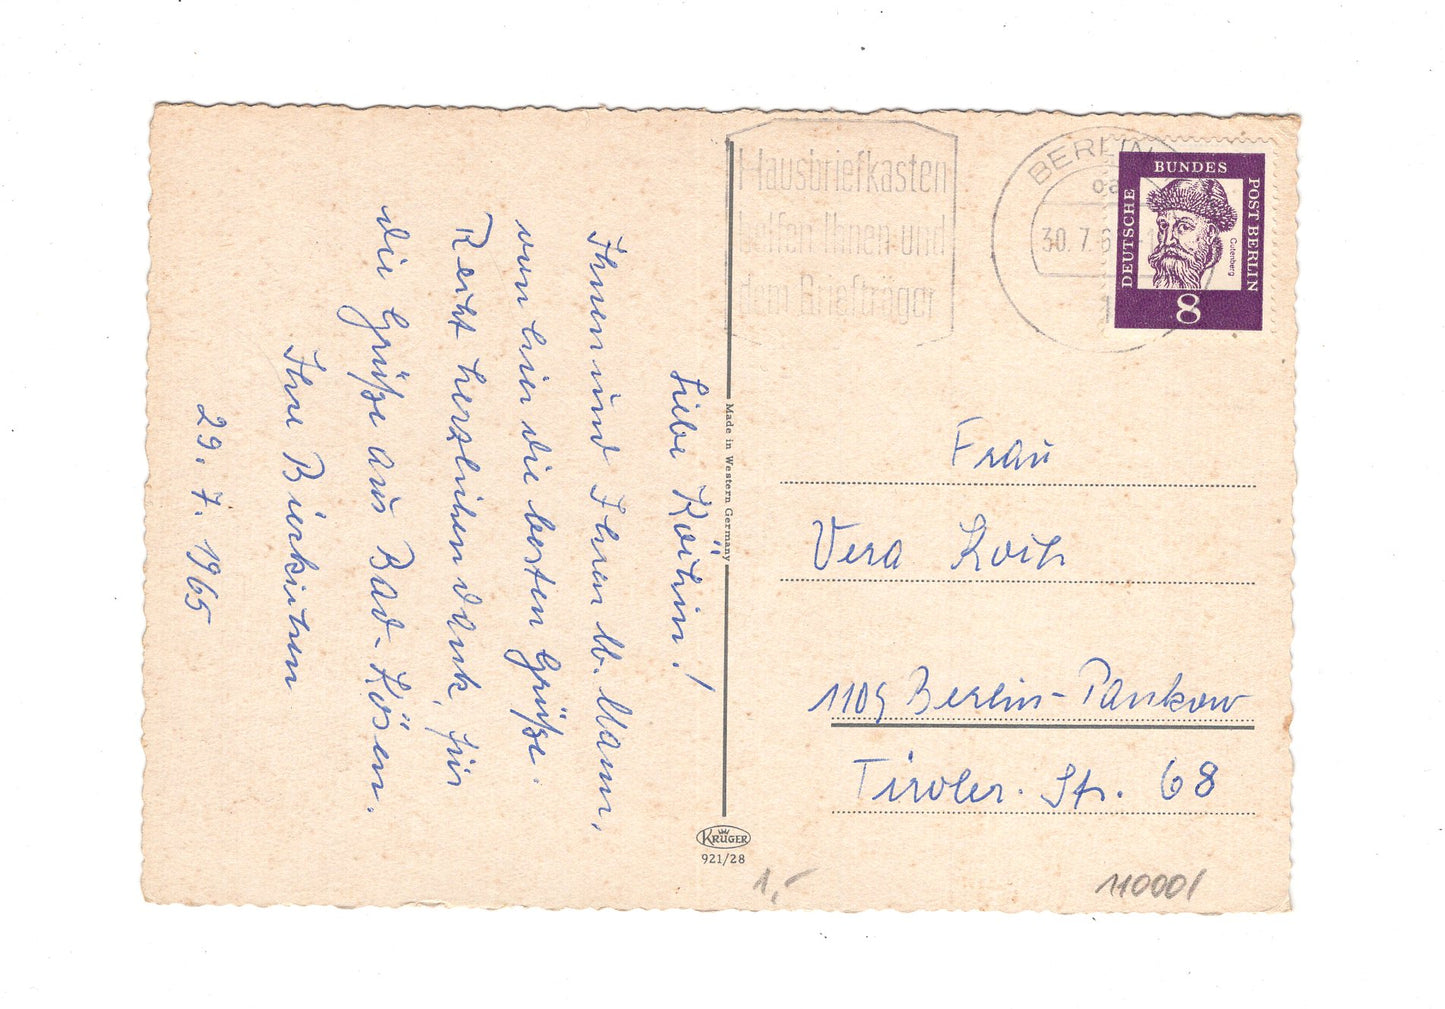 Hausbriefkasten
helfen Ihnen und
dem Briefträger
BERLIN
30. 7. 6
DEUTSCHE
BUNDES
POST BERLIN
Gutenberg
8
Liebe
Ihnen und Ihrem lb. Mann,
von hier die besten Grüße.
Recht herzlichen Dank, für
die Grüße aus Bad-Kösen.
Ihre
29. 7. 1965
Made in Western Germany
KRÜGER
921/28
Frau
Vera
1105 Berlin-Pankow
Tiroler. Str. 68
1,-
110001